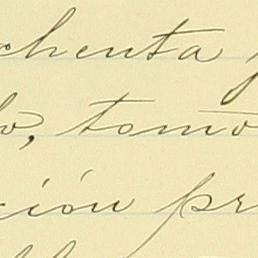 chenta
lo, tomó
ción pr